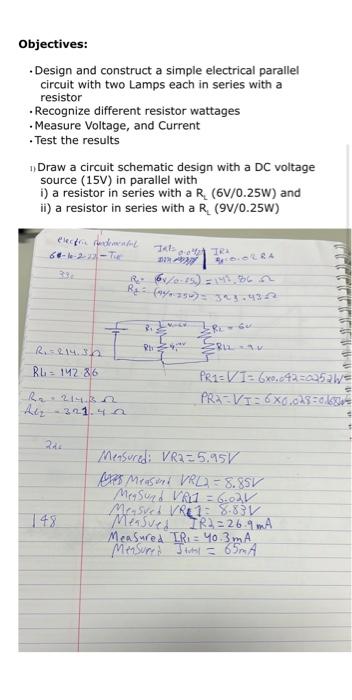 Objectives:
• Design and construct a simple electrical parallel
circuit with two Lamps each in series with a
resistor
• Recognize different resistor wattages
• Measure Voltage, and Current
• Test the results
1) Draw a circuit schematic design with a DC voltage
source (15V) in parallel with
i) a resistor in series with a RL (6V/0.25W) and
ii) a resistor in series with a RL (9V/0.25W)
electric fundamental
- Tue
IR2
R1
RL = 6v
RL2 = 9v
R1 = 214.3Ω
RL1 = 142.86
PR1 = VI = 6x0.042 = 0.252W
R2 = 214.3Ω
RL2 = 321.4Ω
Measured: VR2 = 5.95V
Measured VRL2 = 8.85V
Measured VR1 = 6.02V
Measured VRL1 = 8.83V
148
Measured IR2 = 26.9mA
Measured IR1 = 40.3mA
Measured Itotal = 65mA